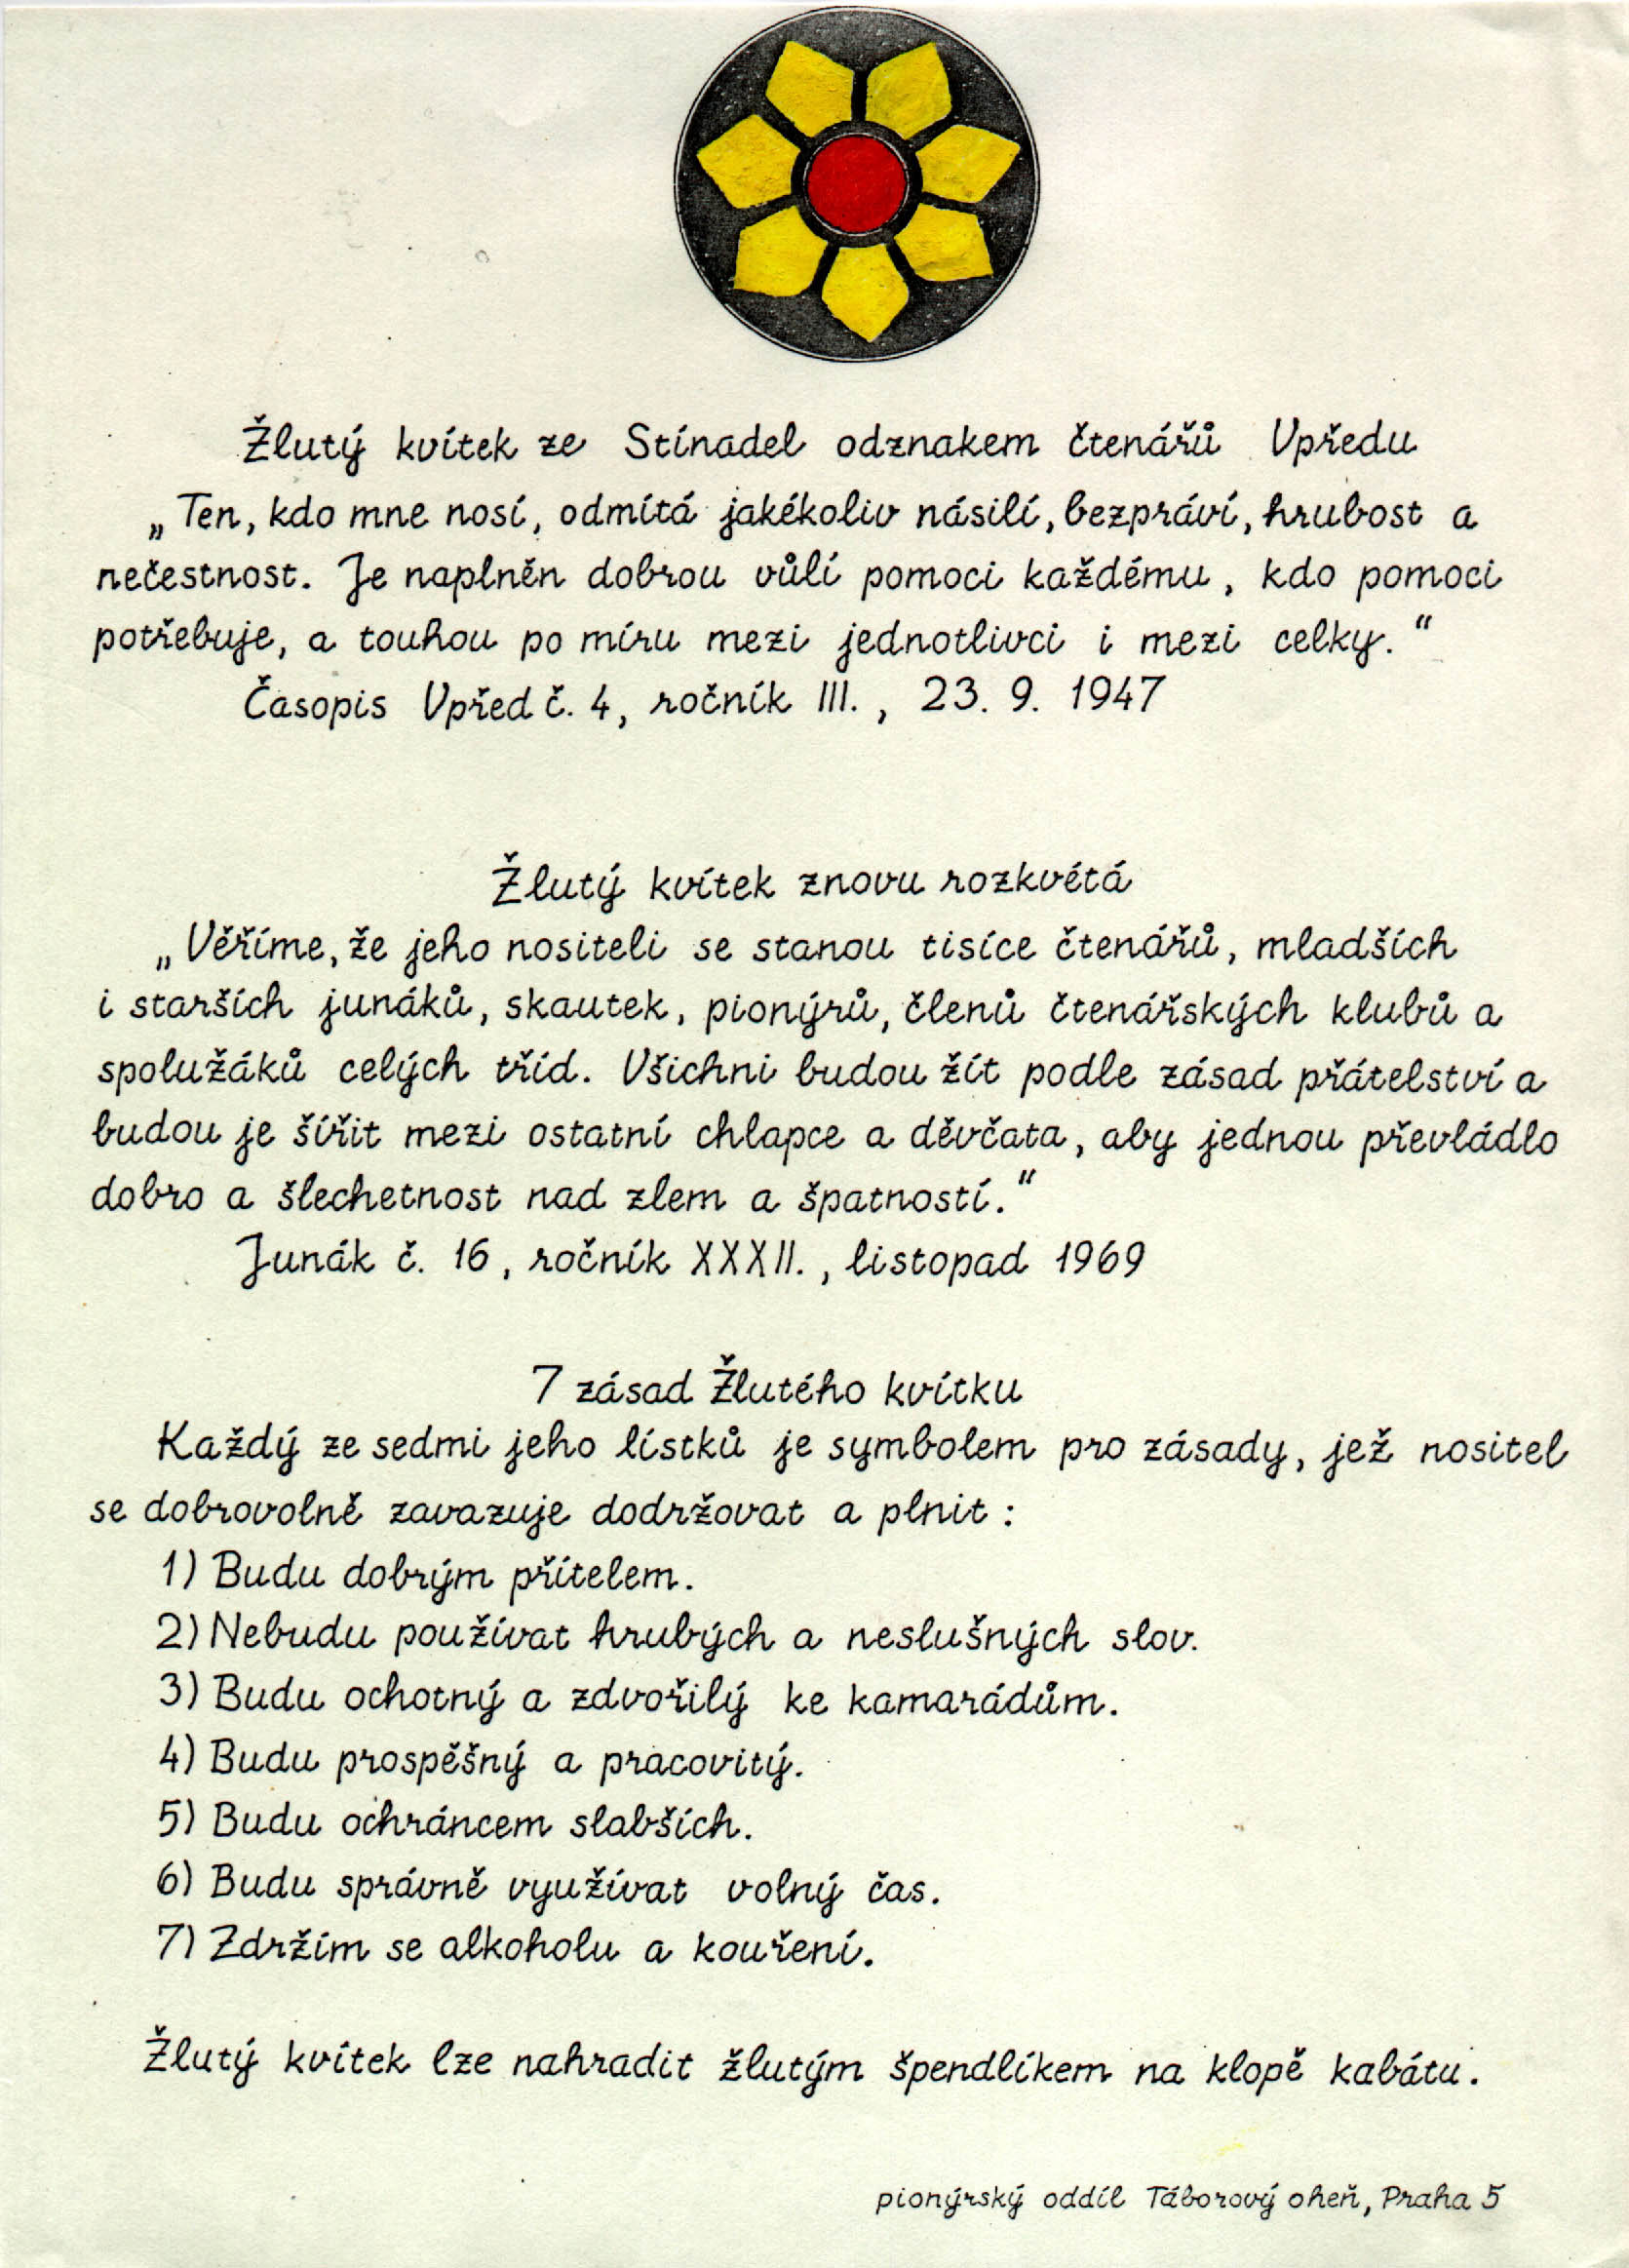 Žlutý kvítek ze Stínadel odznakem čtenářů Vpředu
„Ten, kdo mne nosí, odmítá jakékoliv násilí, bezpráví, hrubost a
nečestnost. Je naplněn dobrou vůlí pomoci každému, kdo pomoci
potřebuje, a touhou po míru mezi jednotlivci i mezi celky.“
Časopis Vpřed č. 4, ročník III., 23. 9. 1947
Žlutý kvítek znovu rozkvétá
„Věříme, že jeho nositeli se stanou tisíce čtenářů, mladších
i starších junáků, skautek, pionýrů, členů čtenářských klubů a
spolužáků celých tříd. Všichni budou žít podle zásad přátelství a
budou je šířit mezi ostatní chlapce a děvčata, aby jednou převládlo
dobro a šlechetnost nad zlem a špatností.“
Junák č. 16, ročník XXXII., listopad 1969
7 zásad Žlutého kvítku
Každý ze sedmi jeho lístků je symbolem pro zásady, jež nositel
se dobrovolně zavazuje dodržovat a plnit:
1) Budu dobrým přítelem.
2) Nebudu používat hrubých a neslušných slov.
3) Budu ochotný a zdvořilý ke kamarádům.
4) Budu prospěšný a pracovitý.
5) Budu ochráncem slabších.
6) Budu správně využívat volný čas.
7) Zdržím se alkoholu a kouření.
Žlutý kvítek lze nahradit žlutým špendlíkem na klopě kabátu.
pionýrský oddíl Táborový oheň, Praha 5